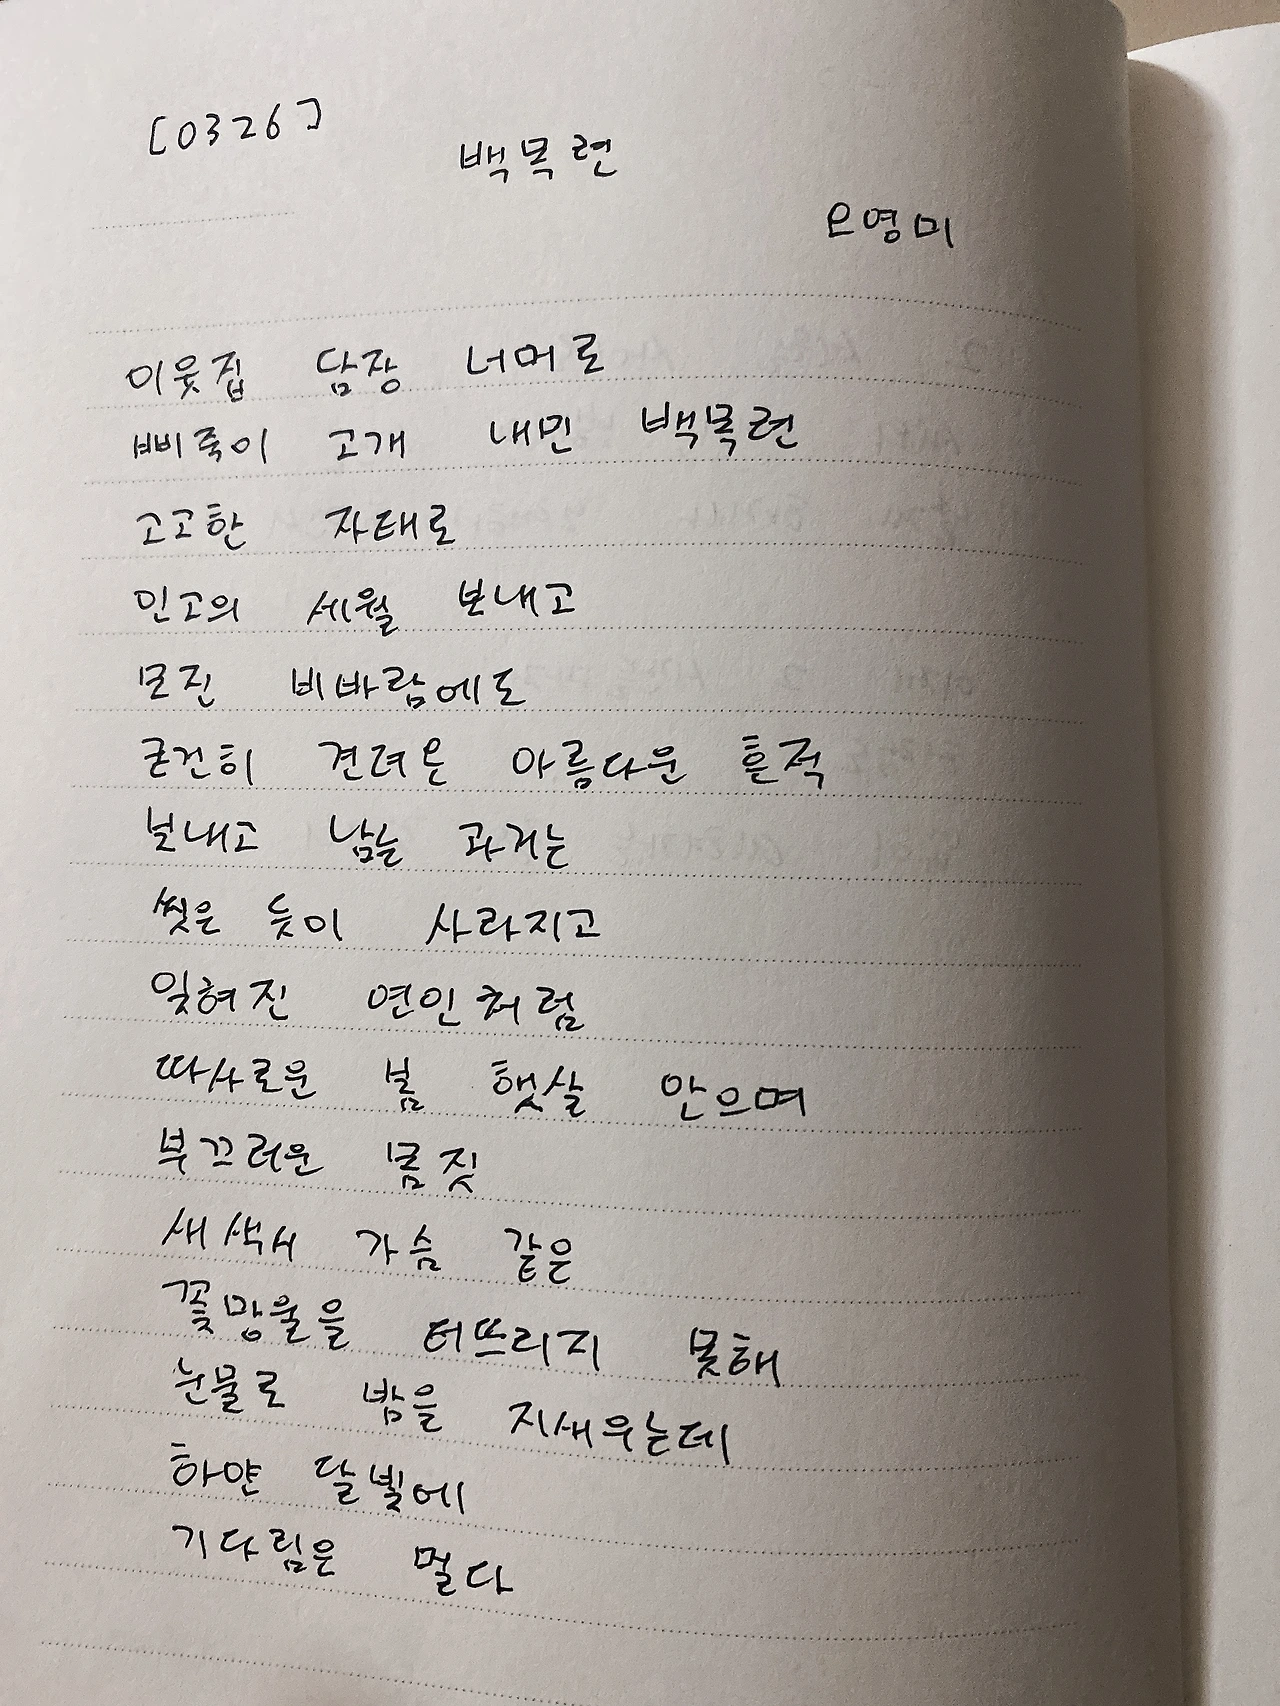 [0326]
백목련
오영미
이웃집 담장 너머로
삐죽이 고개 내민 백목련
고고한 자태로
인고의 세월 보내고
모진 비바람에도
굳건히 견뎌온 아름다운 흔적
보내고 남는 과거는
씻은 듯이 사라지고
잊혀진 연인처럼
따사로운 봄 햇살 안으며
부끄러운 몸짓
새색시 가슴 같은
꽃망울을 터뜨리지 못해
눈물로 밤을 지새우는데
하얀 달빛에
기다림은 멀다